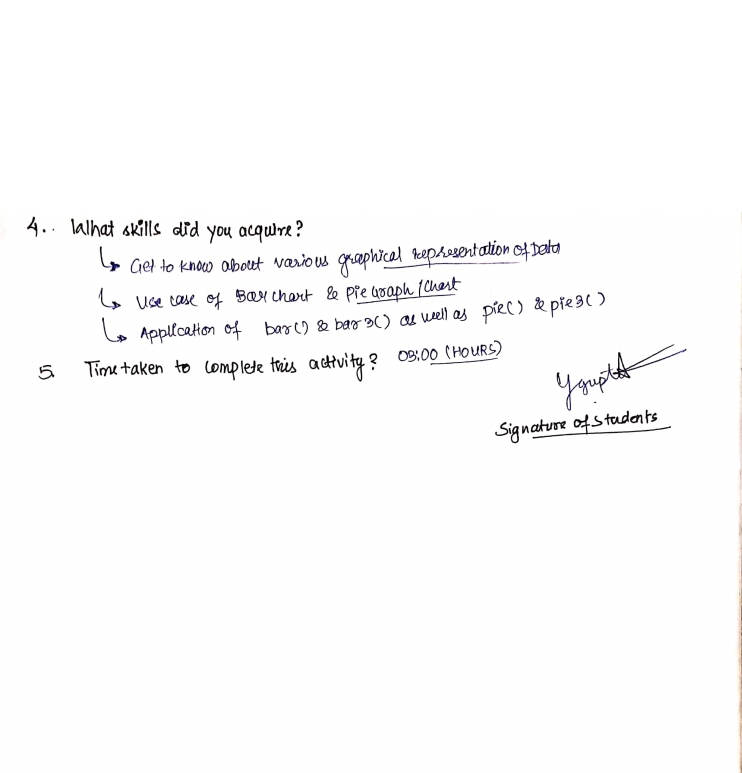 4.. What skills did you acquire?
↳ Get to know about various graphical representation of Data
↳ Use case of Bar chart & Pie Graph / Chart
↳ Application of bar() & bar3() as well as pie() & pie3()
5. Time taken to complete this activity? 03:00 (HOURS)
Ygupta
Signature of Students